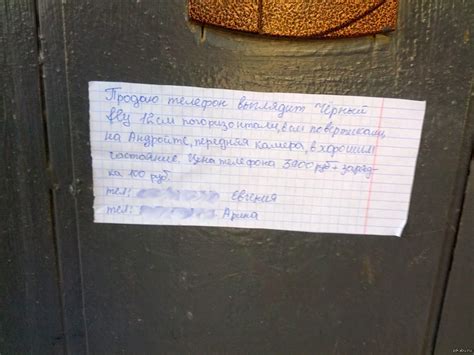 Продаю телефон выглядит Чёрный
12см погоризонтали, 6см повертикали
на Андройте, передняя камера, в хорошим
состояние. Цена телефона 3900 руб + заряд-
ка 100 руб
тел: Евгения
тел: Арина